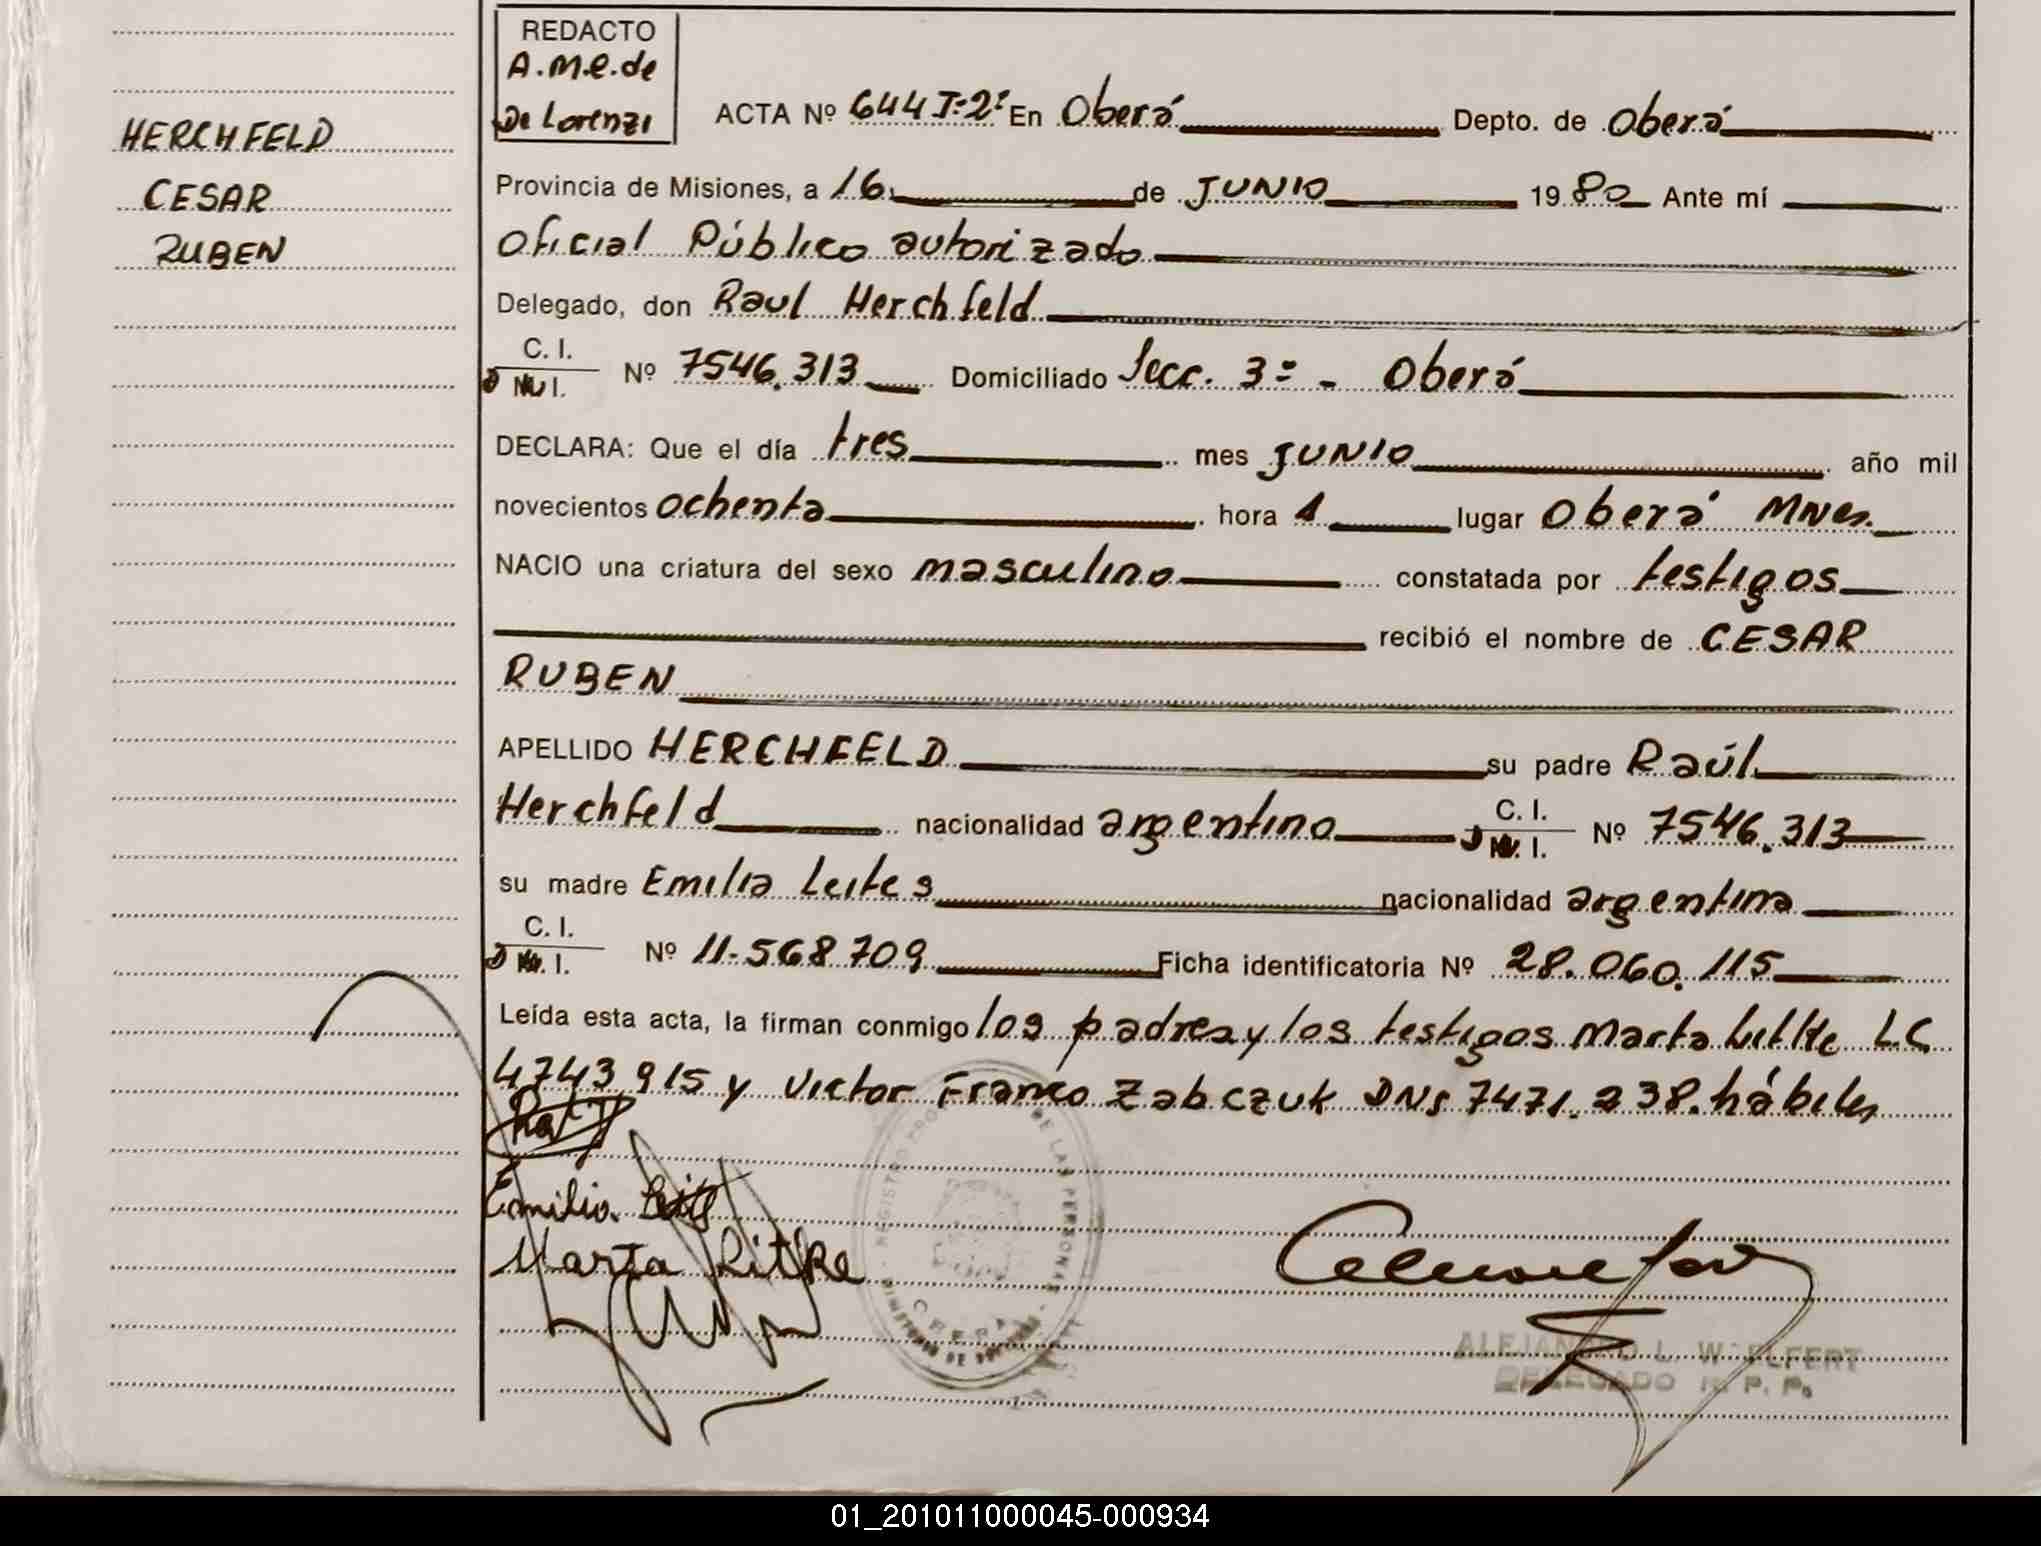 HERCHFELD
CESAR
RUBEN
REDACTO
A.M.E. de
De Lorenzi
ACTA Nº 644 T:2º En Oberá Depto. de Oberá
Provincia de Misiones, a 16 de JUNIO 1980 Ante mí
Oficial Público autorizado
Delegado, don Raul Herchfeld
C. I.
D N I. Nº 7546.313 Domiciliado Secc. 3º - Oberá
DECLARA: Que el día tres mes JUNIO año mil
novecientos ochenta hora 1 lugar Oberá Mnes.
NACIO una criatura del sexo masculino constatada por testigos
recibió el nombre de CESAR
RUBEN
APELLIDO HERCHFELD su padre Raúl
Herchfeld nacionalidad argentino C. I. D N. I. Nº 7546.313
su madre Emilia Leites nacionalidad argentina
C. I.
D N. I. Nº 11.568709 Ficha identificatoria Nº 28.060.115
Leída esta acta, la firman conmigo los padres y los testigos Marta L.C.
4743.915 y Victor Franco Zabczuk DNI 7471.238. hábiles
Emilia Leites
Marta Litke
REGISTRO PRO DE LAS PERSONAS
MINISTERIO DE
OBERA
ALEJANDRO L. W. ELFERT
DELEGADO R. P. P.
01_201011000045-000934